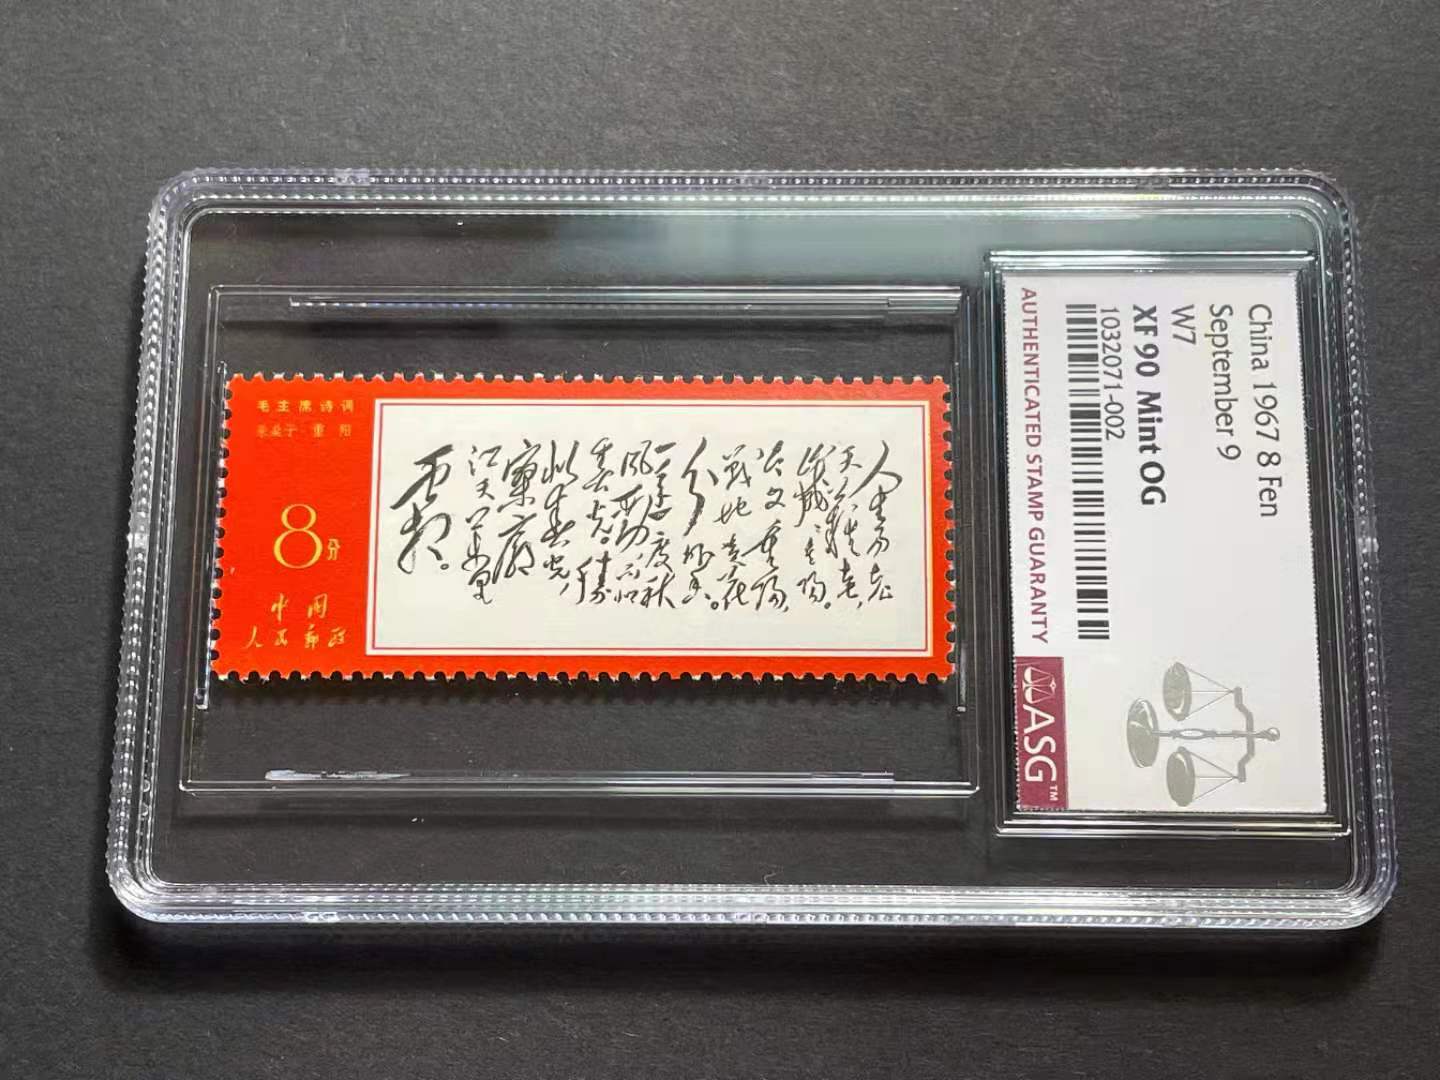 毛主席诗词
采桑子·重阳
8分
中国
人民邮政
人生易老
天難老,
歲歲重陽。
今又重陽,
戰地黄花
分外香。
一年一度秋
風勁不似
春光勝
似春光,
寥廓
江天萬里
霜。
China 1967 8 Fen
September 9
W7
XF 90 Mint OG
1032071-002
AUTHENTICATED STAMP GUARANTY
ASG™